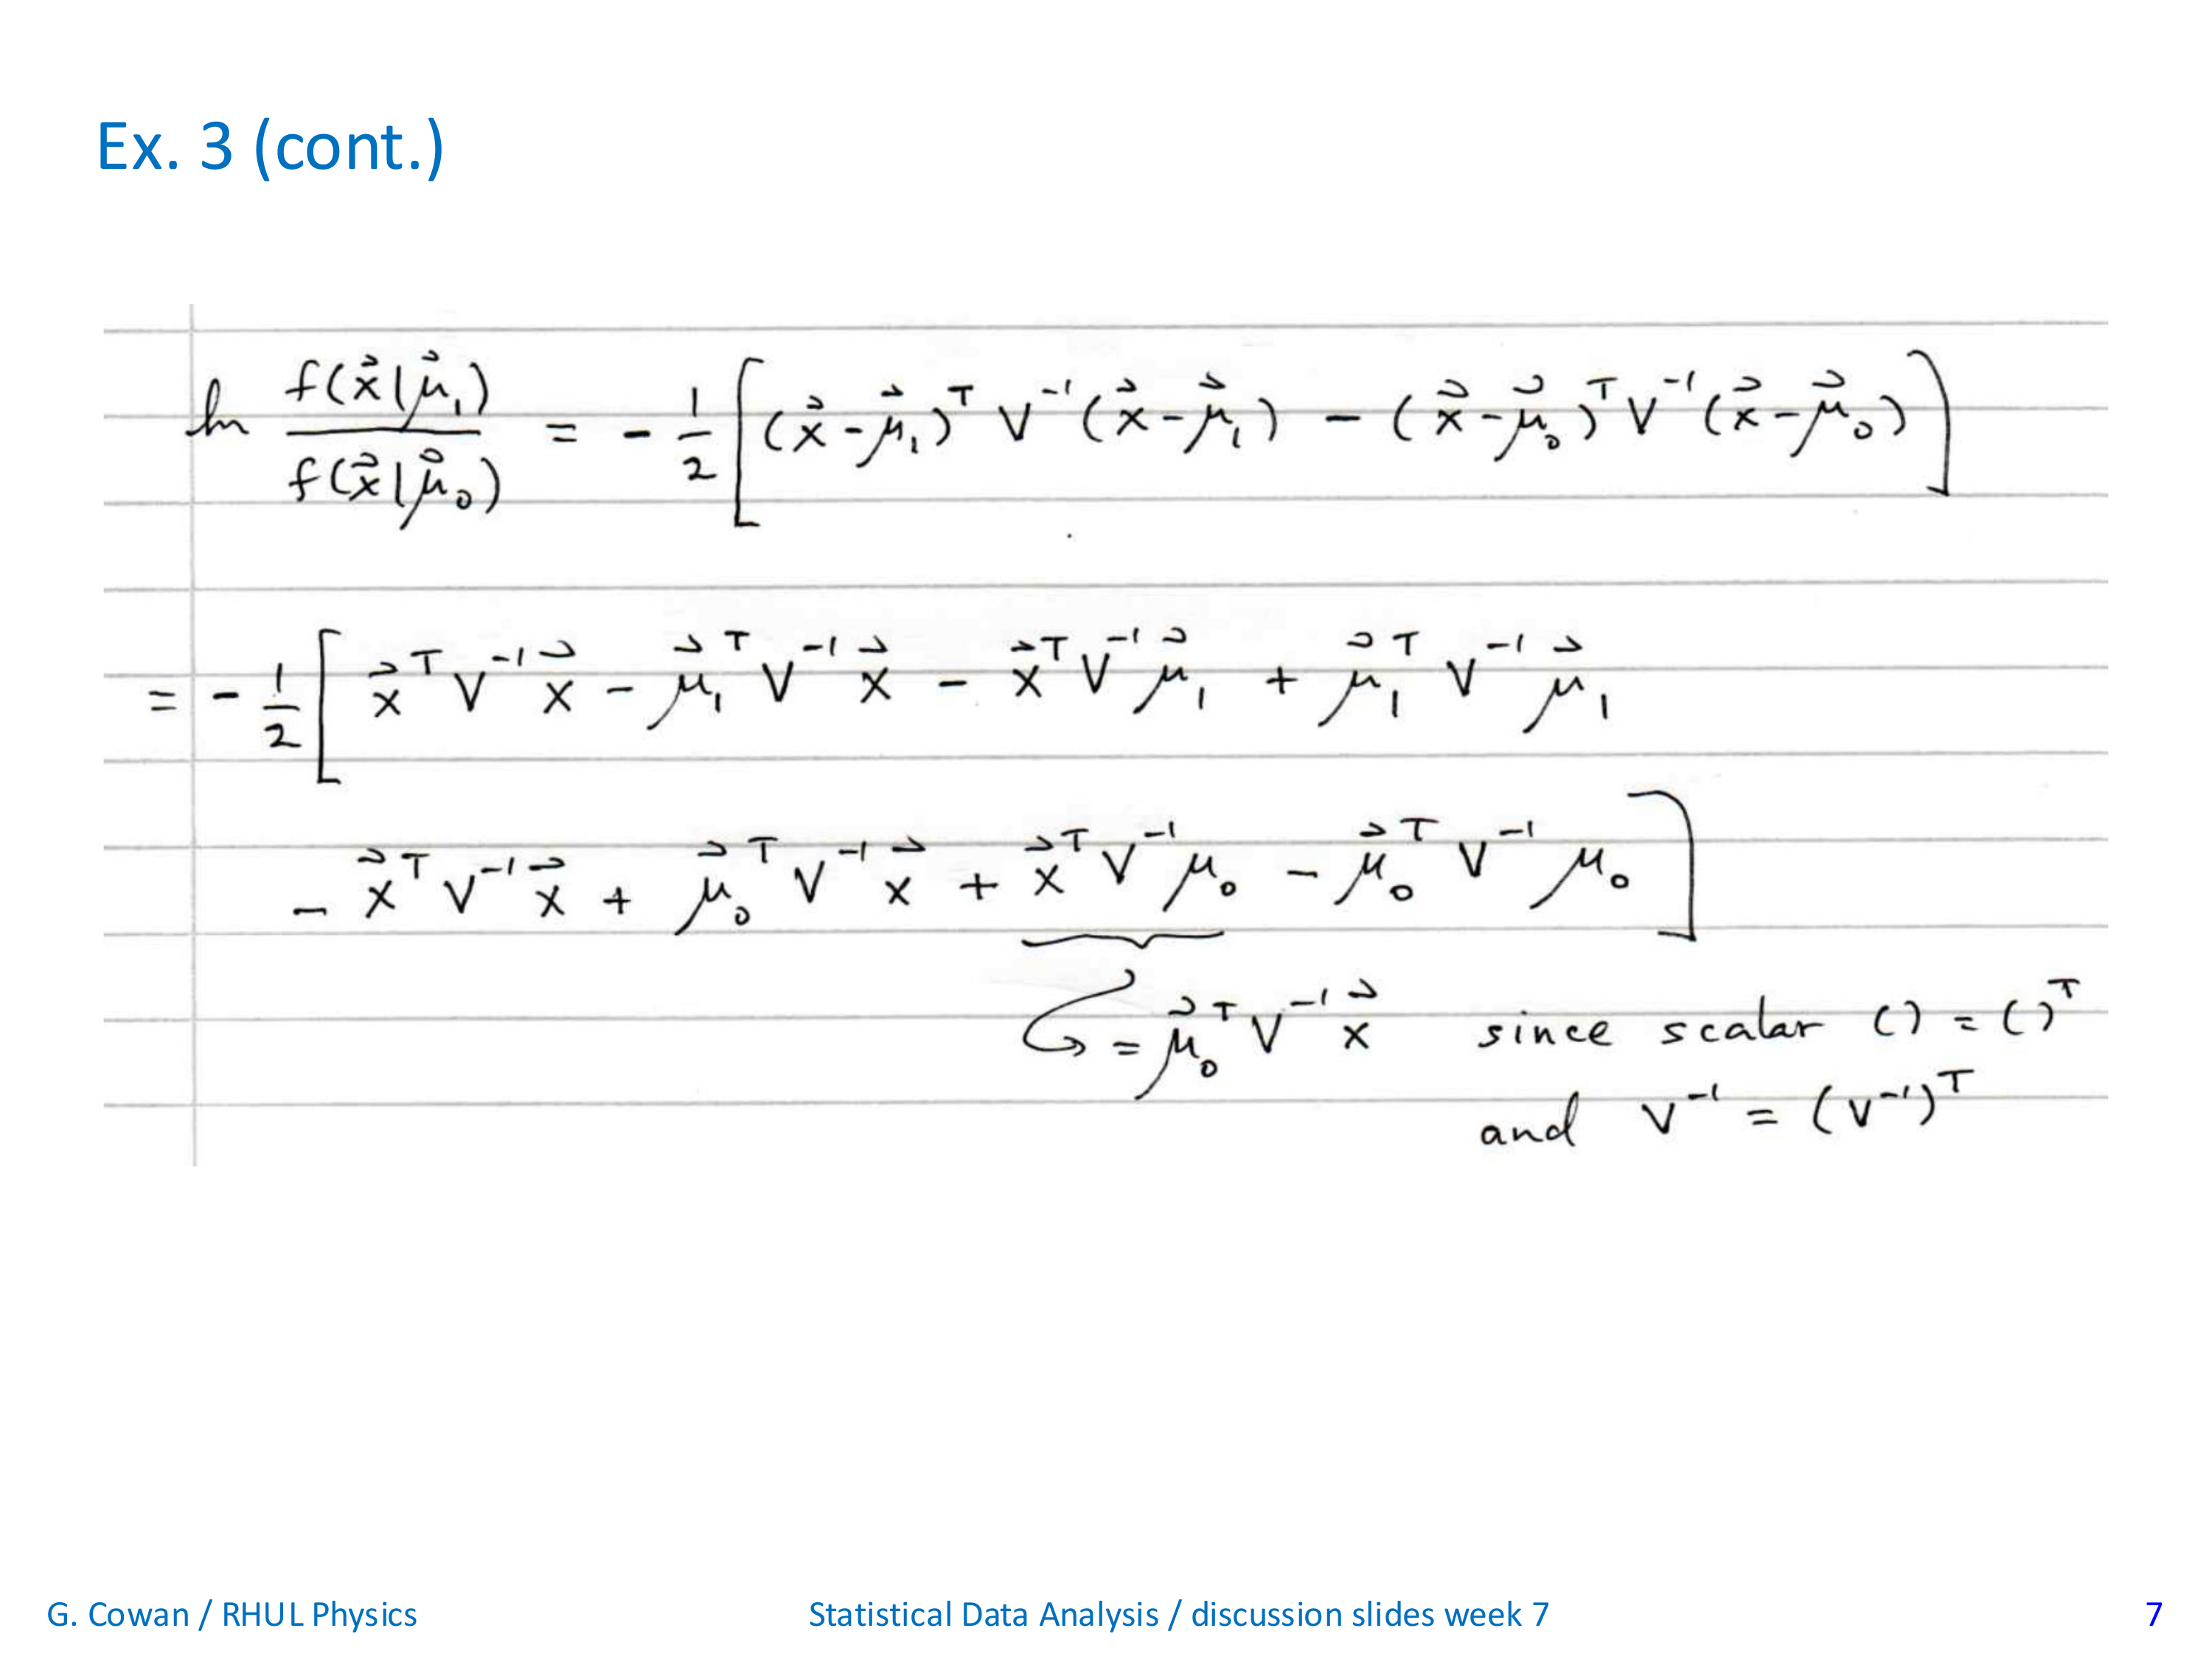 Ex. 3 (cont.)
ln f(x⃗|μ⃗₁) / f(x⃗|μ⃗₀) = - 1/2 [ (x⃗-μ⃗₁)ᵀ V⁻¹ (x⃗-μ⃗₁) - (x⃗-μ⃗₀)ᵀ V⁻¹ (x⃗-μ⃗₀) ]
= - 1/2 [ x⃗ᵀ V⁻¹ x⃗ - μ⃗₁ᵀ V⁻¹ x⃗ - x⃗ᵀ V⁻¹ μ⃗₁ + μ⃗₁ᵀ V⁻¹ μ⃗₁
- x⃗ᵀ V⁻¹ x⃗ + μ⃗₀ᵀ V⁻¹ x⃗ + x⃗ᵀ V⁻¹ μ₀ - μ⃗₀ᵀ V⁻¹ μ₀ ]
↪ = μ⃗₀ᵀ V⁻¹ x⃗ since scalar ( ) = ( )ᵀ
and V⁻¹ = (V⁻¹)ᵀ
G. Cowan / RHUL Physics
Statistical Data Analysis / discussion slides week 7
7